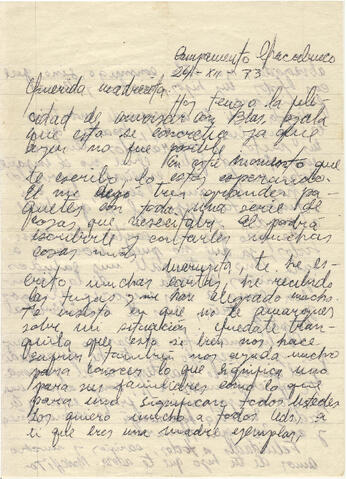 Campamento Chacabuco
24-XII-73
Querida madrecita: Hoy tengo la feli
cidad de conversar con Blas, ojalá
que esta se concretice ya que
ayer no fue posible.
En este momento que
te escribo lo estoy esperando.
El me dejó tres grandes pa
quetes con toda una serie de
cosas que necesitaba. El podrá
escribirte y contarles muchas
cosas más.
, te he es
crito muchas cartas, he recibido
las tuyas y me han alegrado mucho.
Te insisto en que no te amargues
sobre mi situación. Quédate tran
quila que esto si bien nos hace
sufrir también nos ayuda mucho
para conocer lo que significa uno
para sus familiares como lo que
para uno significan todos ustedes
los quiero mucho a todos Uds. a
ti que eres una madre ejemplar,